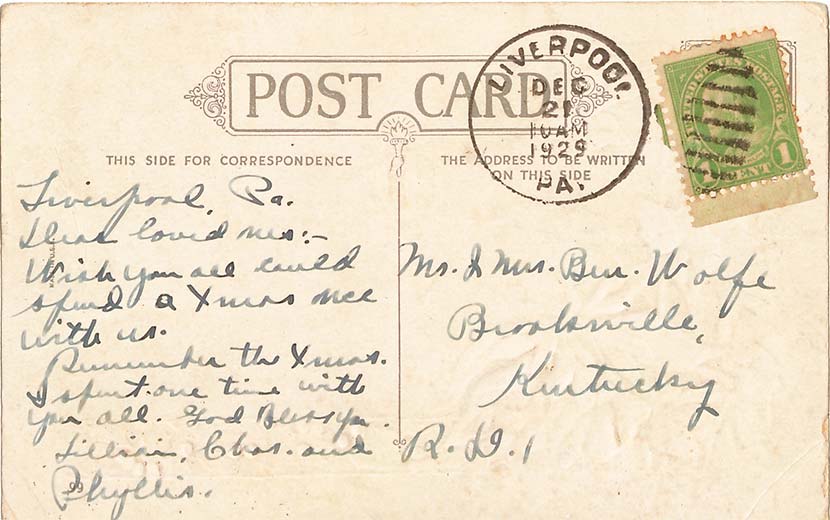 POST CARD
THIS SIDE FOR CORRESPONDENCE
THE ADDRESS TO BE WRITTEN
ON THIS SIDE
LIVERPOOL
DEC
21
10 AM
1929
PA.
UNITED STATES POSTAGE
1 CENT 1
Liverpool, Pa.
Dear loved ones:-
Wish you all could
spend a Xmas
with us.
Remember the Xmas.
I spent one time with
you all. God Bless you.
Lillian, Chas. and
Phyllis.
99
Mr. & Mrs. Ben. Wolfe
Brooksville,
Kentucky
R.D. 1